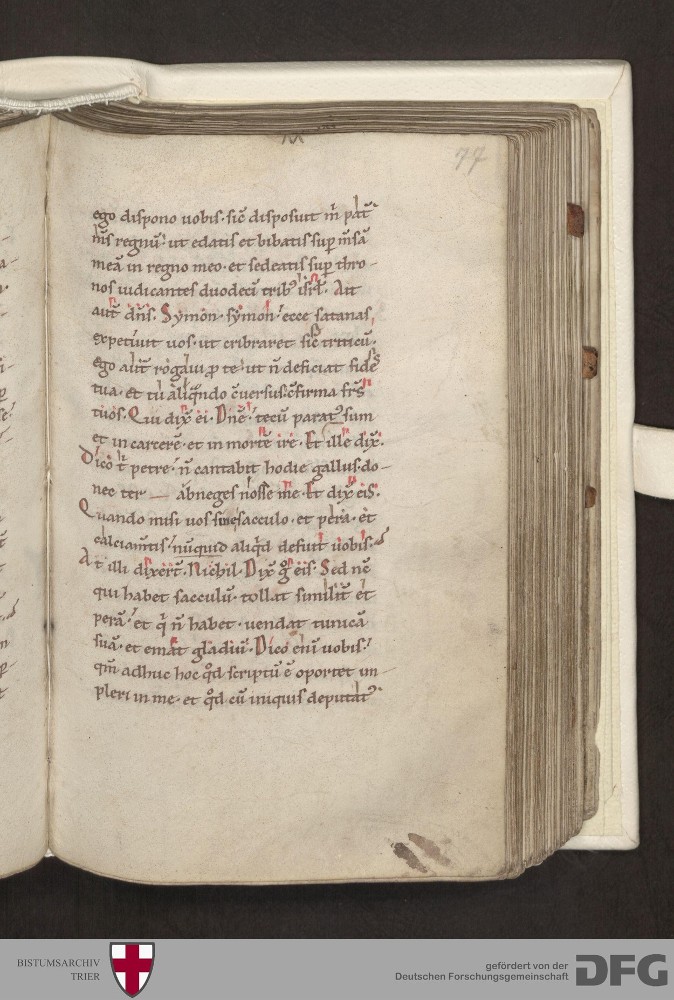 77
ego dispono uobis· sic̄ disposuit m̄ pat̄
m̄s regnū· ut edatis et bibatis sup m̄sā
meā in regno meo· et sedeatis sup thro-
nos iudicantes duodecī trib' isrl̄· Ait
aut̄ dn̄s· Symon· symon· ecce satanas
expetiuit uos· ut cribraret sic̄ triticū·
ego aut̄ rogaui p te· ut n̄ deficiat fidē
tua· et tu aliq̄ndo c̄uersus c̄firma frs̄
tuos· Qui dix̄ ei· Dn̄e· tecū parat' sum
et in carcerē· et in mortē ire· Et ille dix̄·
Dico t̄ petre· n̄ cantabit hodie gallus· do-
nec ter abneges nosse me· Et dix̄ eis·
Quando misi uos sine sacculo· et pera· et
calciam̄tis· nūquid aliq̄d defuit uobis·
At illi dixert̄· Nichil· Dix̄ g̊ eis· Sed nc̄
qui habet sacculū· tollat similit̄ et
perā· et q̄ n̄ habet· uendat tunicā
suā· et emat gladiū· Dico enī uobis·
qm̄ adhuc hoc q̄d scriptū ē oportet im-
pleri in me· et q̄d cū iniquis deputat'·
BISTUMSARCHIV
TRIER
gefördert von der
Deutschen Forschungsgemeinschaft
DFG